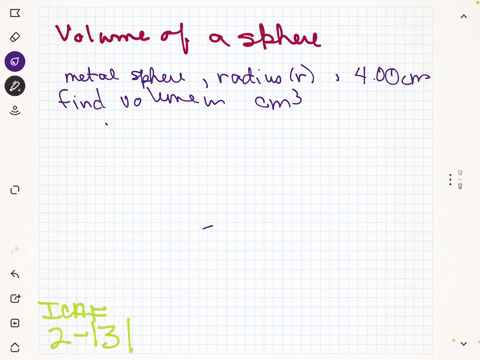 Volume of a sphere
metal sphere, radius (r), 4.00cm
find volume in cm3
ICAF
2-131